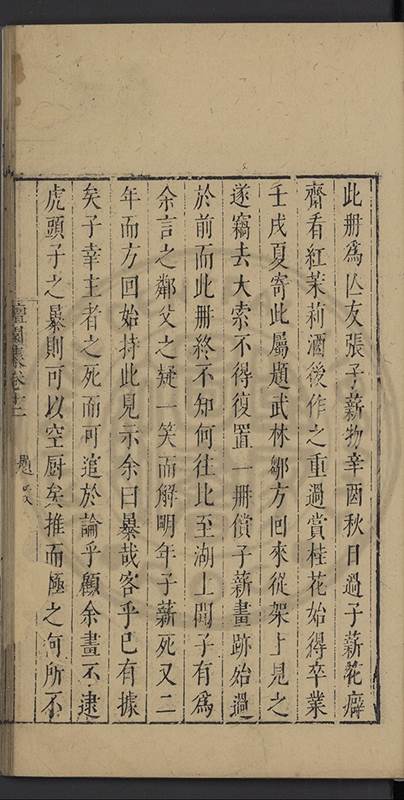 此冊為亾友張子薪物辛酉秋日過子薪花癖
齋看紅茉莉酒後作之重過賞桂花始得卒業
壬戌夏寄此屬題武林鄒方回來從架上見之
遂竊去大索不得復置一冊償子薪畫跡始過
於前而此冊終不知何往比至湖上聞子有為
余言之鄰父之疑一笑而解明年子薪死又二
年而方回始持此見示余曰暴哉客乎已有據
矣子幸主者之死而可逭於論乎顧余畫不逮
虎頭子之暴則可以空厨矣推而極之何所不
檀園集卷十二
題跋